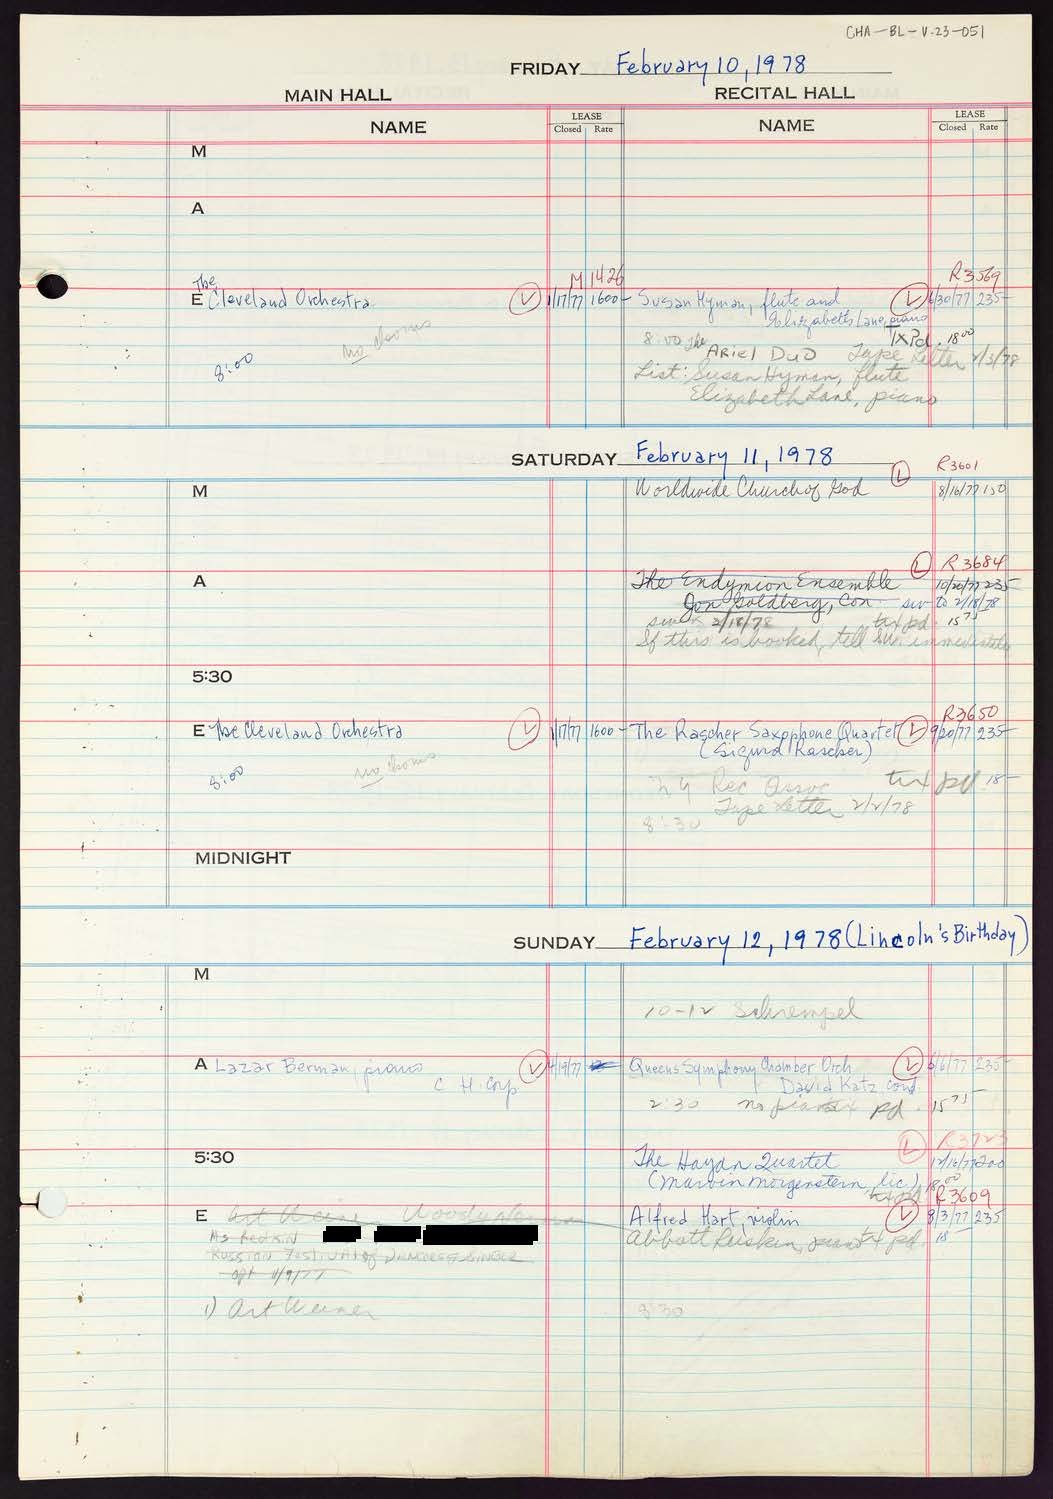 CHA-BL-V.23-051
FRIDAY February 10, 1978
MAIN HALL RECITAL HALL
NAME LEASE Closed Rate NAME LEASE Closed Rate
M
A
M 1426 R3569
The
E Cleveland Orchestra L 1/17/77 1600- Susan Hyman, flute and L 6/30/77 235-
Elizabeth Lane, piano
no chorus TxPd. 18 00
8:00 8:00 The Ariel Duo Tape Letter 2/3/78
List: Susan Hyman, flute
Elizabeth Lane, piano
SATURDAY February 11, 1978
L R3601
M Worldwide Church of God 8/16/77 150
L R3684
A The Endymion Ensemble 10/20/77 235-
Jon Goldberg, Con. sw to 2/18/78
2/18/78 tx pd. 15 75
If this is booked, tell SW. immediately
5:30
R3650
E The Cleveland Orchestra L 1/17/77 1600- The Rascher Saxophone Quartet L 9/20/77 235-
(Sigurd Rascher)
8:00 no chorus NY Rec Assoc tax pd. 18-
Tape Letter 2/2/78
8:30
MIDNIGHT
SUNDAY February 12, 1978 (Lincoln's Birthday)
M
10-12 Schrempel
A Lazar Berman, piano L 4/19/77 Queens Symphony Chamber Orch L 6/6/77 235-
C H. Corp David Katz Cond.
2:30 no piano tx pd. 15 75
L R3723
5:30 The Haydn Quartet 12/16/77 200
(Marvin Morgenstern, lic.) 18.00
tx pd R3609
E Art Weiner Alfred Hart, violin L 8/3/77 235
Ms Redkin Abbott Ruskin, piano tx pd. 18-
Russian Festival of
opt 4/9/77
1) Art Weiner 8:30